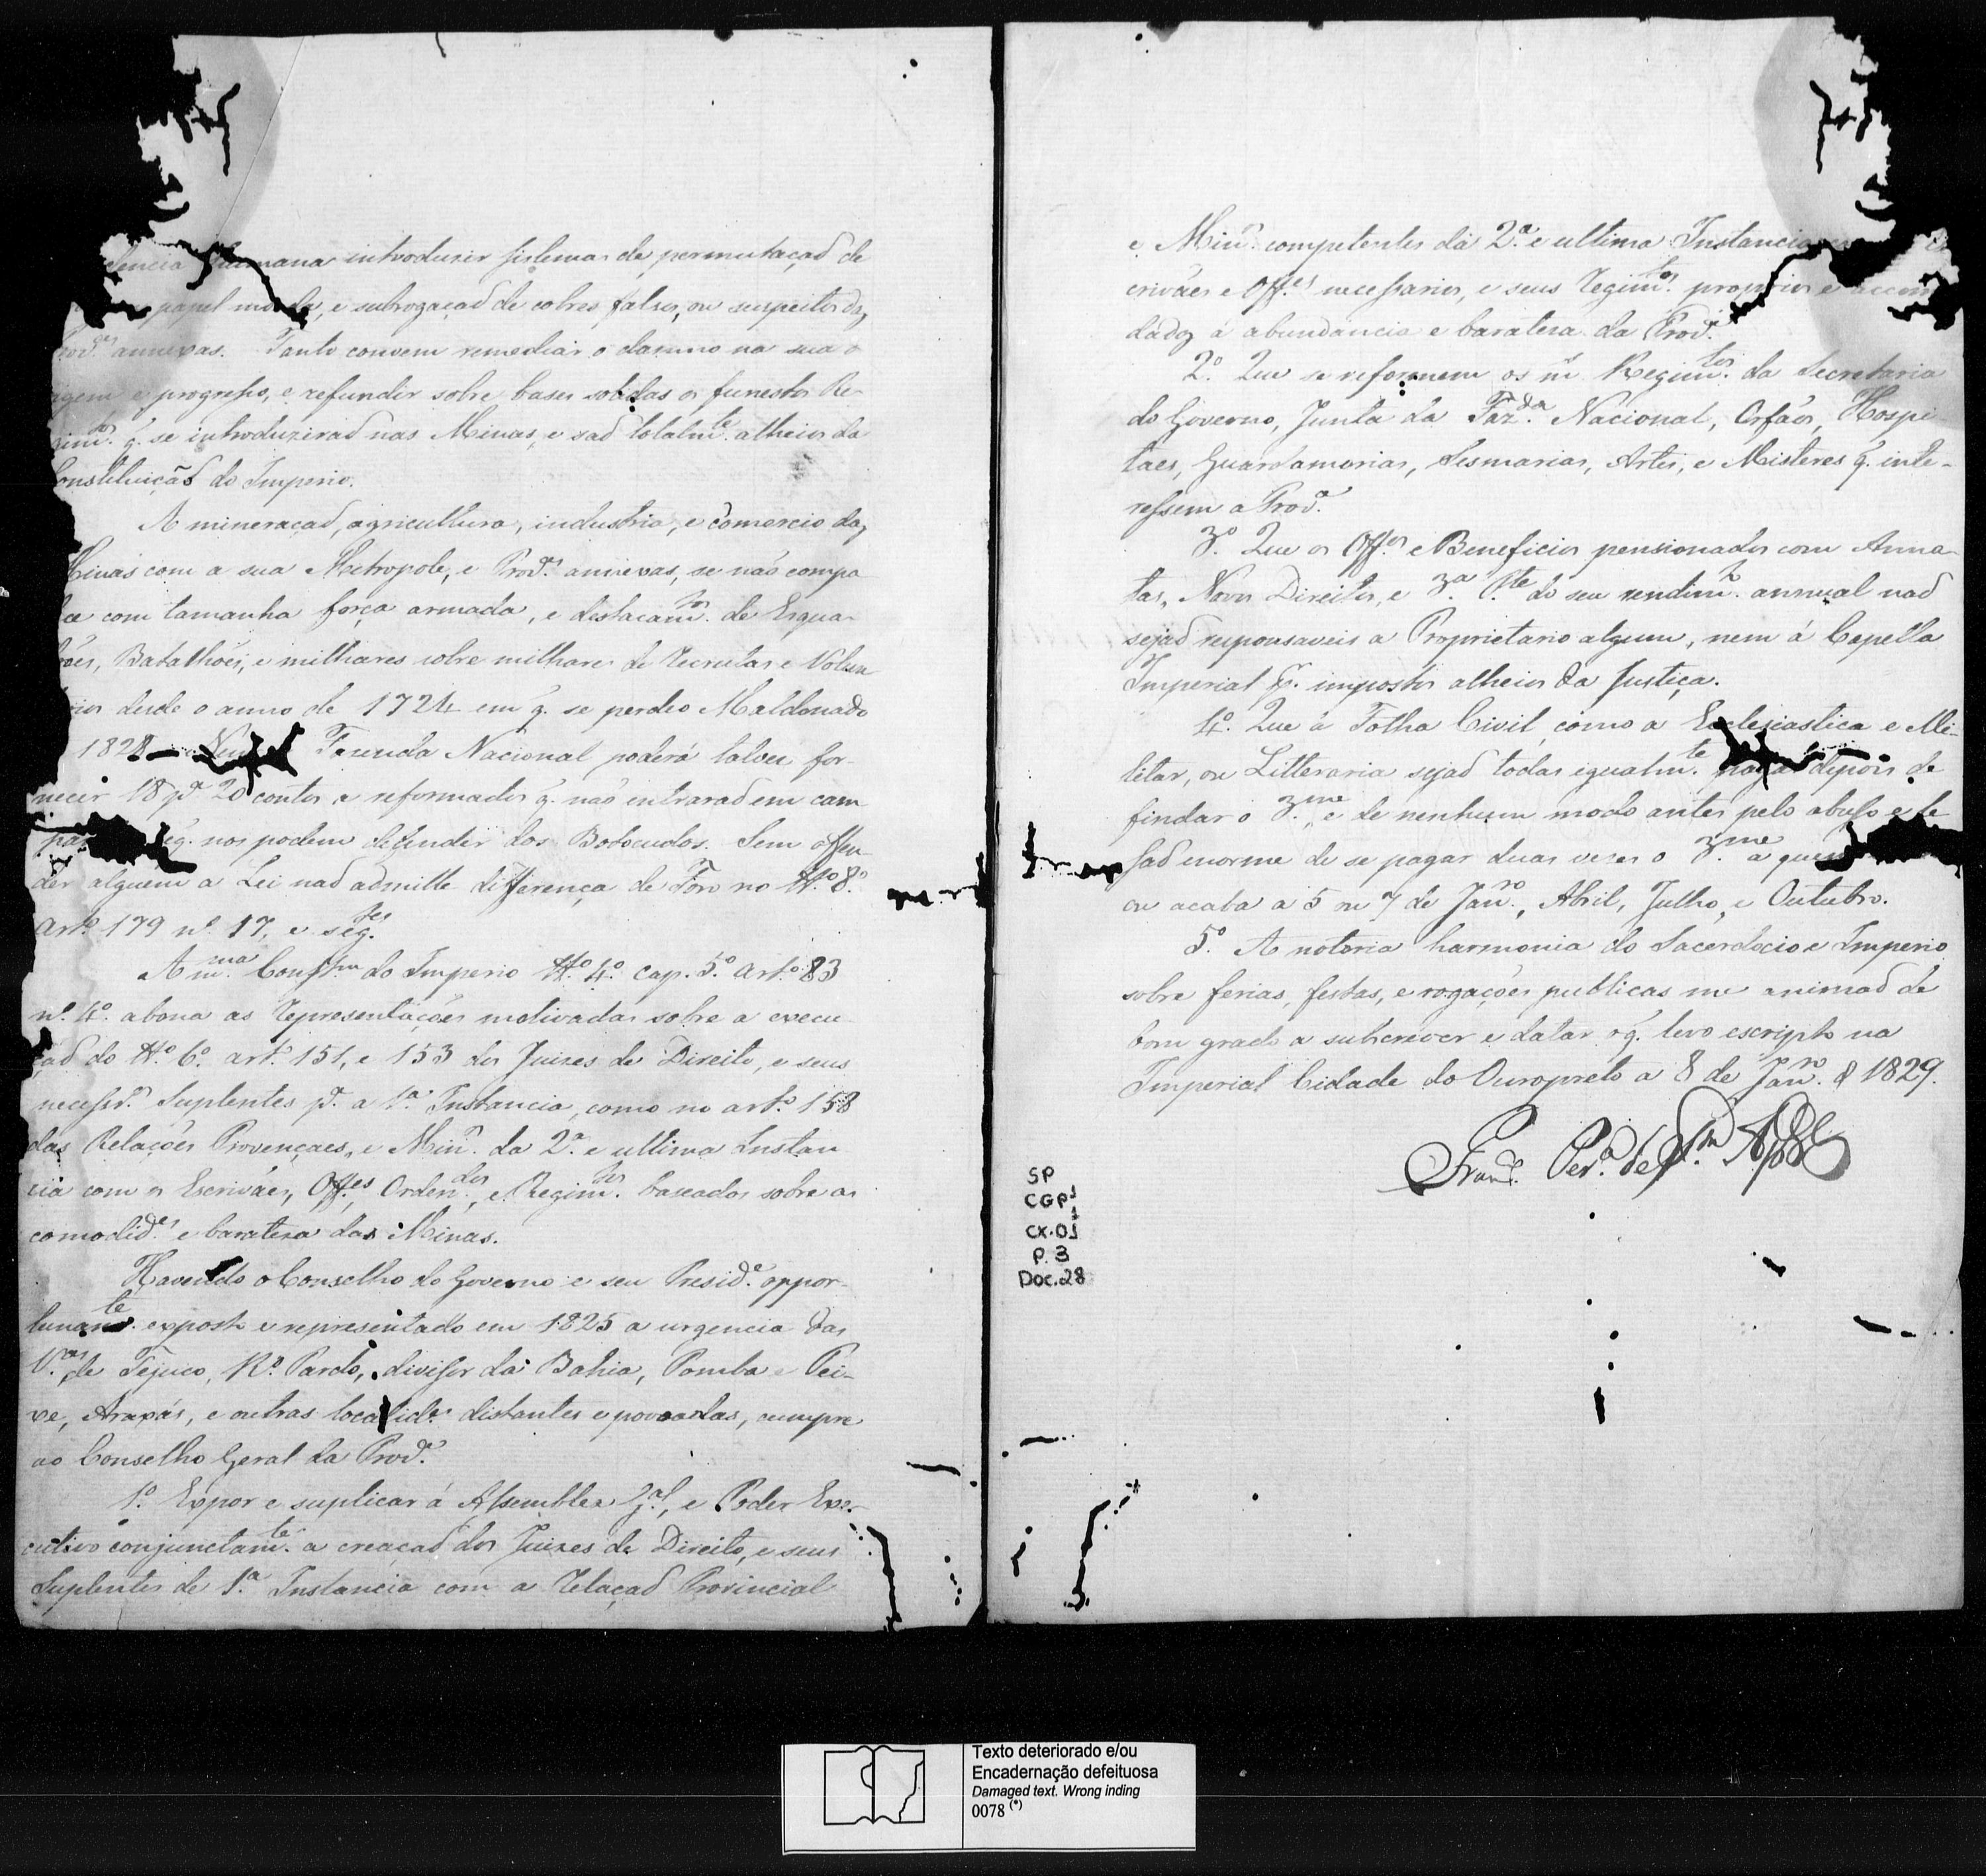 dencia humana introduzir sistemas de permutaçaõ de
papel moeda, e subrogaçaõ de cobres falsos, ou suspeitos das
Prov.es annexas. Tanto convem remediar o damno na sua o
rigem e progresso, e refundir sobre bases solidas os funestos Re-
gim.tos q. se introduziraõ nas Minas, e saõ totalm.te alheios da
Constituiçaõ do Imperio.
A mineraçaõ, agricultura, industria, e comercio das
Minas com a sua Metropole, e Prov.as annexas, se naõ compa
dece com tamanha força armada, e distacam.tos de Esqua-
drões, Batalhões, e milhares sobre milhares de Recrutas e Volun
tarios desde o anno de 1724 em q. se perdeo Maldonado
1828 — Fazenda Nacional poderá talves for-
necer 18 p.a 20 contos a reformados q. naõ entraraõ em cam
q. nos podem defender dos Botocudos. Sem offen-
der alguem a Lei naõ admitte differença de Foro no tt.o 8.o
art.o 179 n.o 17, e seg.tes
A m.ma Const.am do Imperio tt.o 4.o cap. 5.o art.o 83
n.o 4.o abona as Representações motivadas sobre a execu
çaõ do tt.o 6.o art.o 151, e 153 dos Juizes de Direito, e seus
necessr.os Suplentes p.a a 1.a Instancia, como no art.o 158
das Relações Provençaes, e Min.os da 2.a e ultima Instan
cia com os Escrivães, Off.es Orden.dos, e Regim.tos baseados sobre as
comodid.es e barateza das Minas.
Havendo o Conselho do Governo e seu Presid.e oppor-
tunam.te exposto e representado em 1825 a urgencia das
V.as de Tejuco, R.o Pardo, divisor da Bahia, Pomba e Pei-
xe, Araxás, e outras localid.es distantes e povoadas, cumpre
ao Conselho Geral da Prov.a
1.o Expor e suplicar á Assemblea G.al, e Poder Exe-
cutivo conjunctam.te a creaçaõ dos Juizes de Direito, e seus
Suplentes de 1.a Instancia com a Relaçaõ Provincial
e Min.os competentes da 2.a e ultima Instancia
crivães e Off.es necessarios, e seus Regim.tos proprios e accom
dados á abundancia e barateza da Prov.a
2.o Que se reformem os m.s Regim.tos da Secretaria
do Governo, Junta da Faz.da Nacional, Orfãos, Hospi
taes, Guardamorias, Sesmarias, Artes, e Misteres q. inte-
ressem a Prov.a
3.o Que os Off.os e Beneficios pensionados com Anna-
tas, Novos Direitos, e 3.a P.te do seu rendim.to annual naõ
sejaõ responsaveis a Proprietario algum, nem á Capella
Imperial p.r impostos alheios da Justiça.
4.o Que a Folha Civil, como a Ecclesiastica e Mi-
litar, ou Litteraria sejaõ todas igualm.te pagas depois de
findar o 3.me, e de nenhum modo antes pelo abuso e le
saõ enorme de se pagar duas vezes o 3.me a quem
ou acaba a 5 ou 7 de Jan.ro, Abril, Julho, e Outubro.
5.o A notoria harmonia do Sacerdocio e Imperio
sobre ferias, festas, e rogações publicas me animaõ de
bom grado a subscrever e datar o q. levo escripto na
Imperial Cidade do Ouropreto a 8 de Jan.ro d 1829.
Fran.co Per.a de S.ta Apol.a
SP
CGP1
1
CX.01
P. 3
Doc.28
Texto deteriorado e/ou
Encadernação defeituosa
Damaged text. Wrong inding
0078 (*)